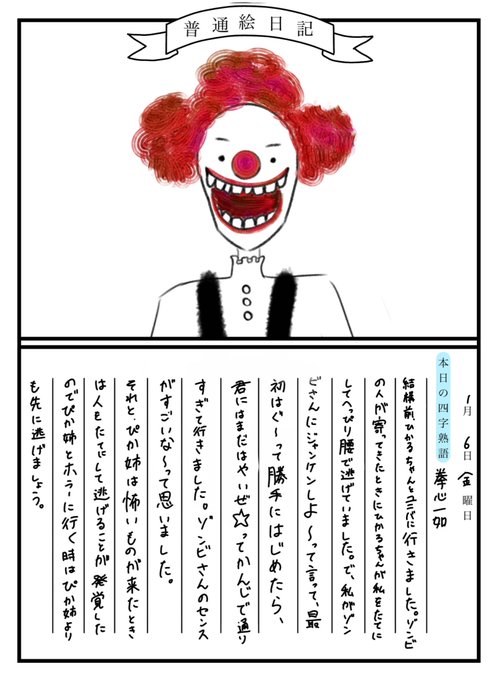 普通絵日記
1月6日金曜日
本日の四字熟語 拳心一如
結構前、ひかるちゃんとユニバに行きました。ゾンビ
の人が寄ってきたときにひかるちゃんが私をたてに
してへっぴり腰で逃げていました。で、私がゾン
ビさんにジャンケンしよ〜って言って、最
初はぐ〜って勝手にはじめたら、
君にはまだはやいぜ☆ってかんじで通り
すぎて行きました。ゾンビさんのセンス
がすごいな〜って思いました。
それと、ぴか姉は怖いものが来たとき
は人をたてにして逃げることが発覚した
のでぴか姉とホラーに行く時はぴか姉より
も先に逃げましょう。